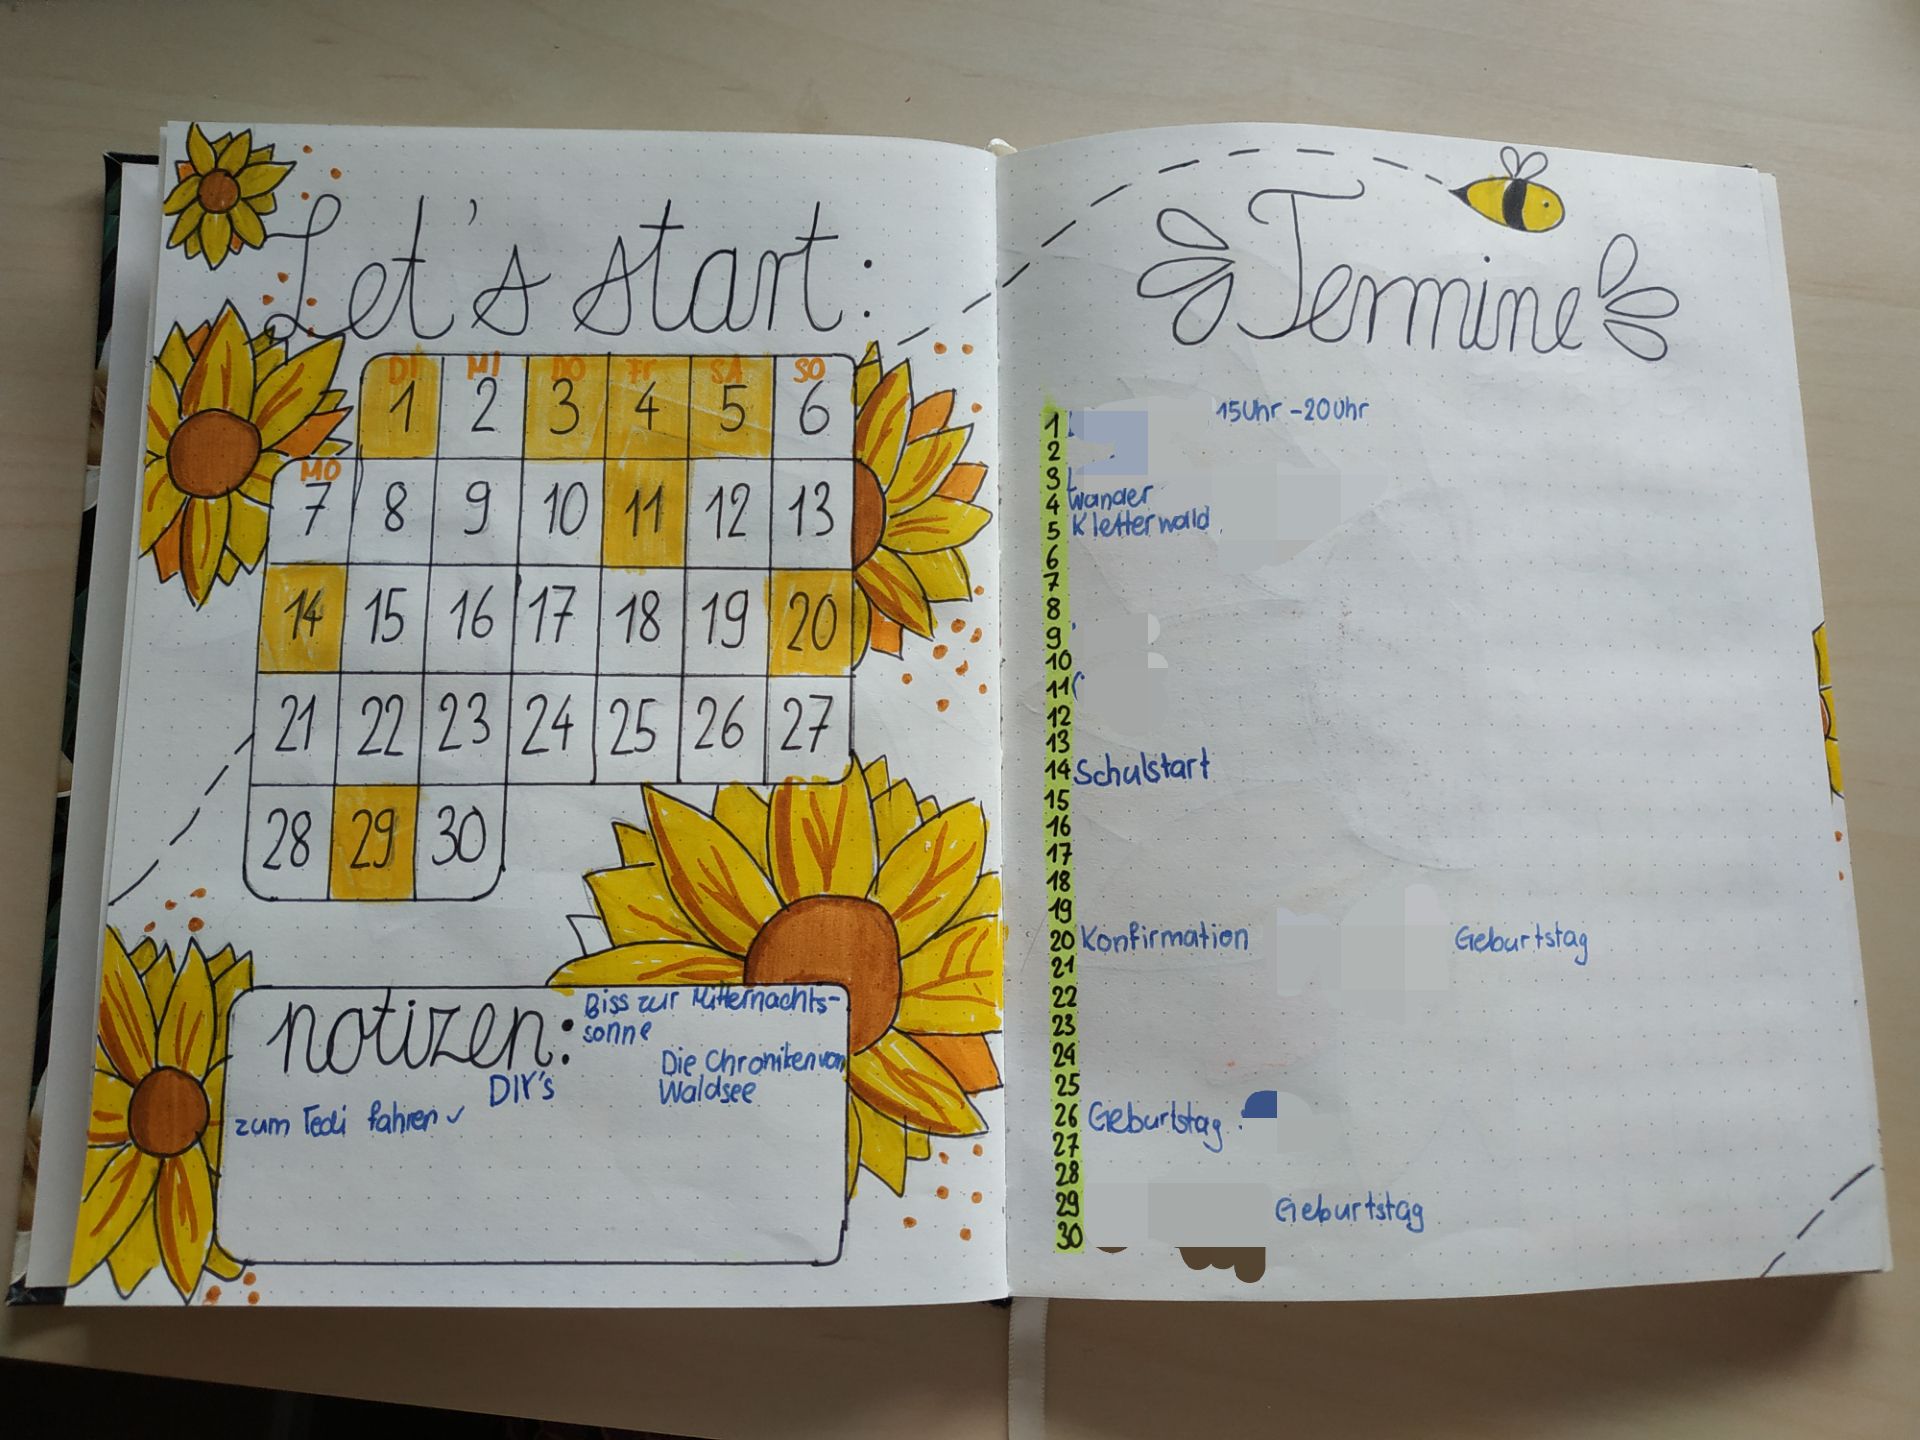 Let's start:
DI MI DO Fr SA SO
1 2 3 4 5 6
MO
7 8 9 10 11 12 13
14 15 16 17 18 19 20
21 22 23 24 25 26 27
28 29 30
notizen:
Biss zur Mitternachts-
sonne
Die Chroniken von
Waldsee
DIY's
zum Tedi fahren ✓
Termine
1 15Uhr - 20Uhr
2
3
4 Wander
5 Kletterwald
6
7
8
9
10
11
12
13
14 Schulstart
15
16
17
18
19
20 Konfirmation Geburtstag
21
22
23
24
25
26 Geburtstag
27
28
29 Geburtstag
30